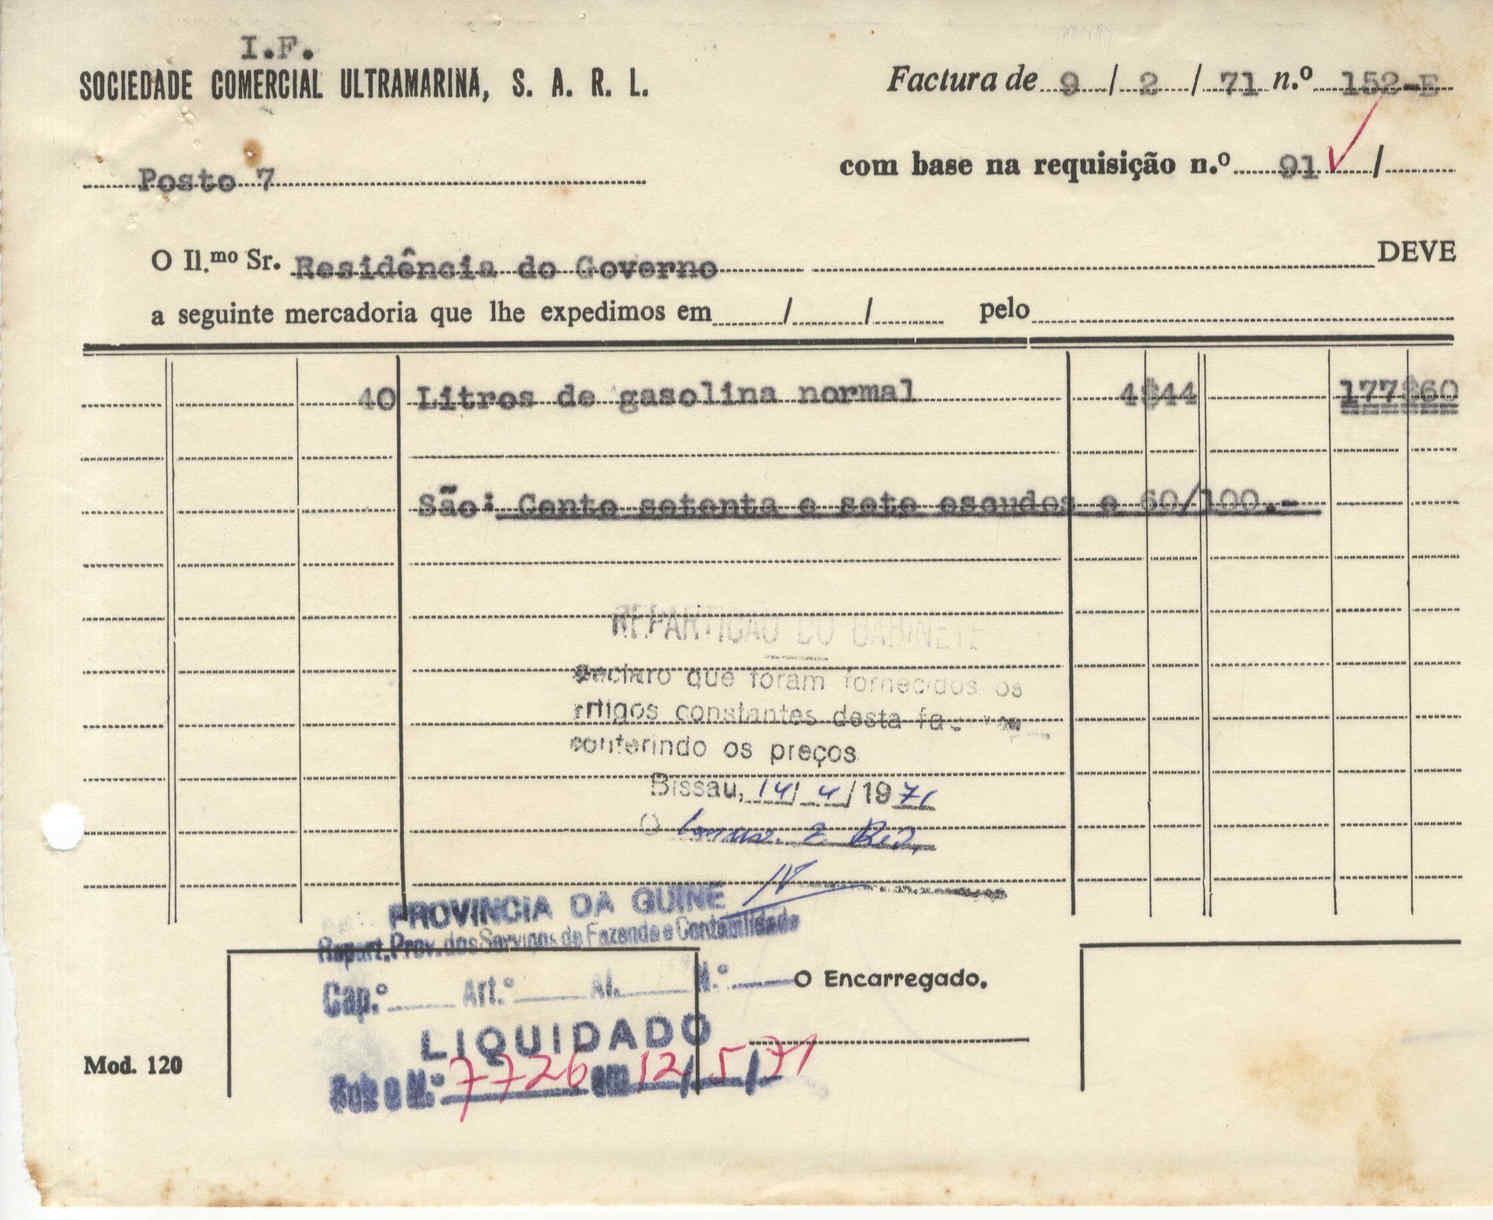 I.F.
SOCIEDADE COMERCIAL ULTRAMARINA, S. A. R. L.
Factura de 9 / 2 / 71 n.º 152-E
Posto 7
com base na requisição n.º 91 /
O Il.mo Sr. Residência do Governo DEVE
a seguinte mercadoria que lhe expedimos em / / pelo
40 Litros de gasolina normal 4$44 177$60
São: Cento setenta e sete escudos e 60/100.-
REPARTIÇÃO DO GABINETE
Declaro que foram fornecidos os
artigos constantes desta
conferindo os preços
Bissau, 14/ 4 /1971
O
PROVINCIA DA GUINÉ
Repart. Prov. dos Serviços de Fazenda e Contabilidade
Cap.º Art.º Al. N.º
O Encarregado,
LIQUIDADO
Mod. 120
Sob o N.º 7726 em 12/5/71